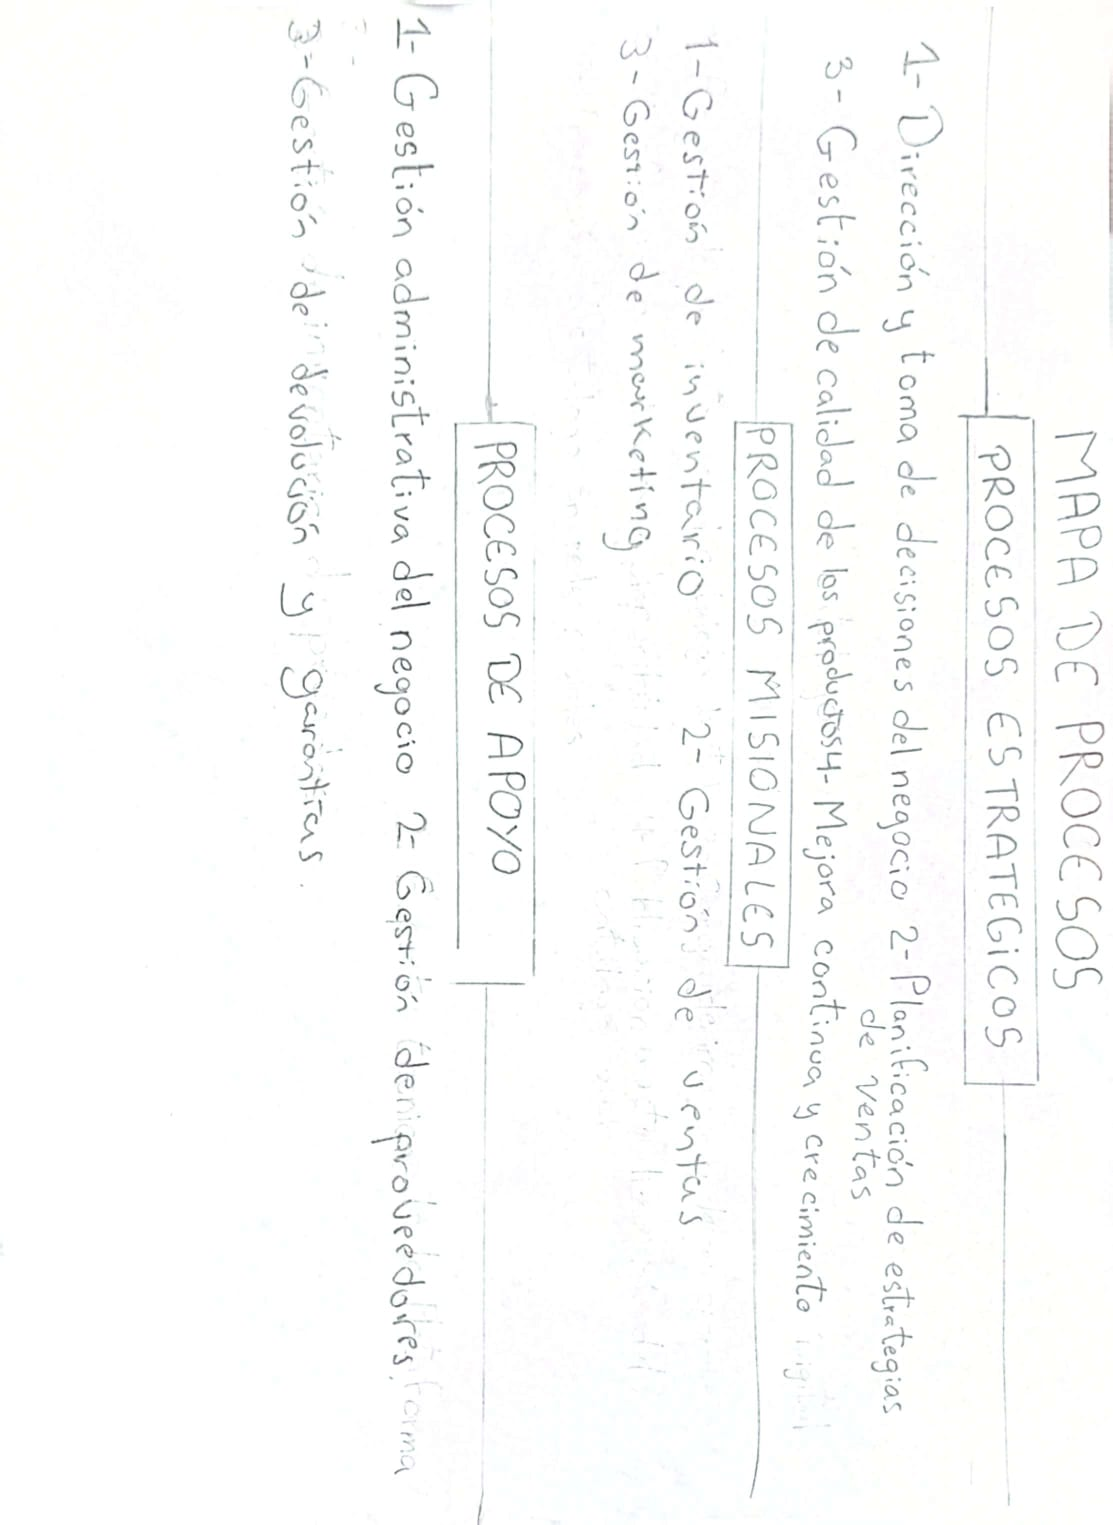 MAPA DE PROCESOS
PROCESOS ESTRATEGICOS
1- Dirección y toma de decisiones del negocio 2- Planificación de estrategias
de ventas
3- Gestión de calidad de los productos 4- Mejora continua y crecimiento
PROCESOS MISIONALES
1- Gestión de inventairio 2- Gestión de ventas
3- Gestión de marketing
PROCESOS DE APOYO
1- Gestión administrativa del negocio 2- Gestión de proveedores.
3- Gestión de devolución y garantías.